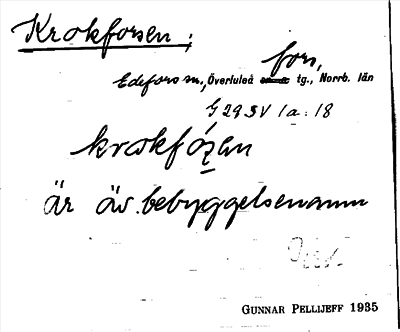 Krokforsen;
fors,
Edefors sn, Överluleå tg., Norrb. län
G 29 SV 1a:18
krokfózen
är äv. bebyggelsenamn
GUNNAR PELLIJEFF 1935